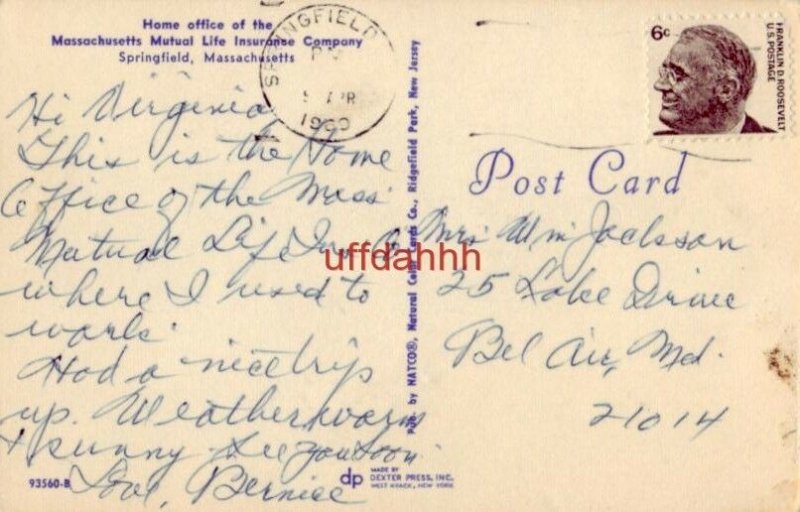 Home office of the
Massachusetts Mutual Life Insurance Company
Springfield, Massachusetts
SPRINGFIELD
PM
APR
1969
6c
FRANKLIN D. ROOSEVELT
U.S. POSTAGE
Hi Virginia
This is the Home
Office of the Mass
Mutual Life Ins Co
where I used to
work.
Had a nice trip
up. Weather warm
+ sunny. See you soon.
Love, Bernice
Pub. by NATCO®, Natural Color Cards Co., Ridgefield Park, New Jersey
Post Card
Mrs. Wm Jackson
25 Lake Drive
Bel Air, Md.
21014
uffdahhh
93560-B
dp
MADE BY
DEXTER PRESS, INC.
WEST NYACK, NEW YORK